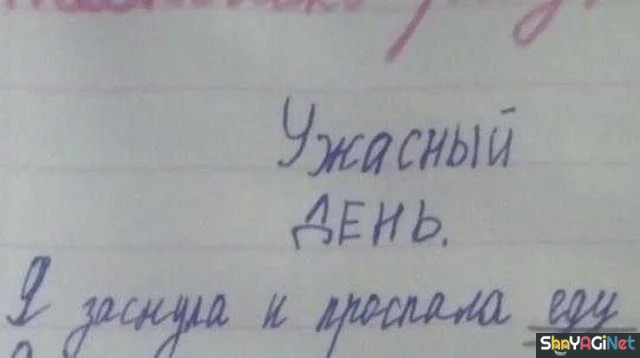 Ужасный
ДЕНЬ.
Я заснула и проспала еду
ShnYAGiNet